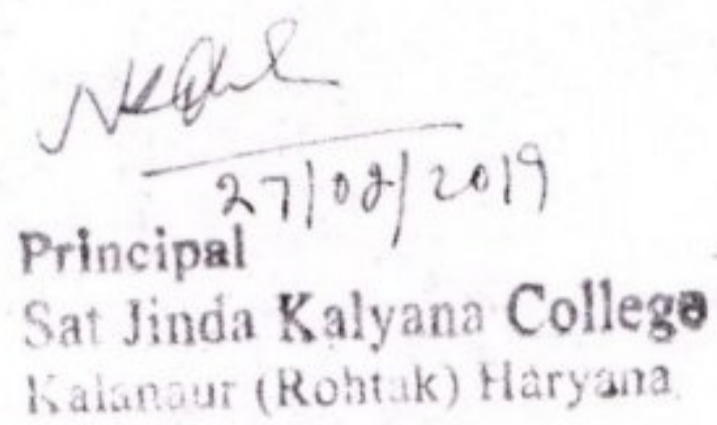 27/02/2019
Principal
Sat Jinda Kalyana College
Kalanaur (Rohtak) Haryana